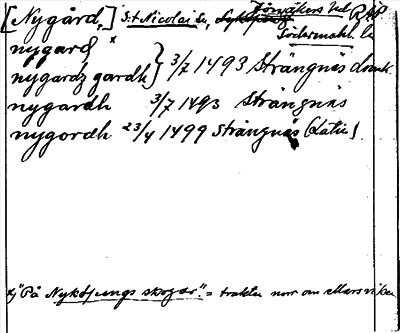 [Nygård,] S:t Nicolai sn, Nyköping Förvaltas vid RHP
Södermanl. l.
nygard x
nygardz gardh } 3/7 1493 Strängnäs domk.
nygardh 3/7 1493 Strängnäs
nygordh 23/4 1499 Strängnäs (Latin).
x) "På Nyköpungs skogar" = trakten norr om Marsviken